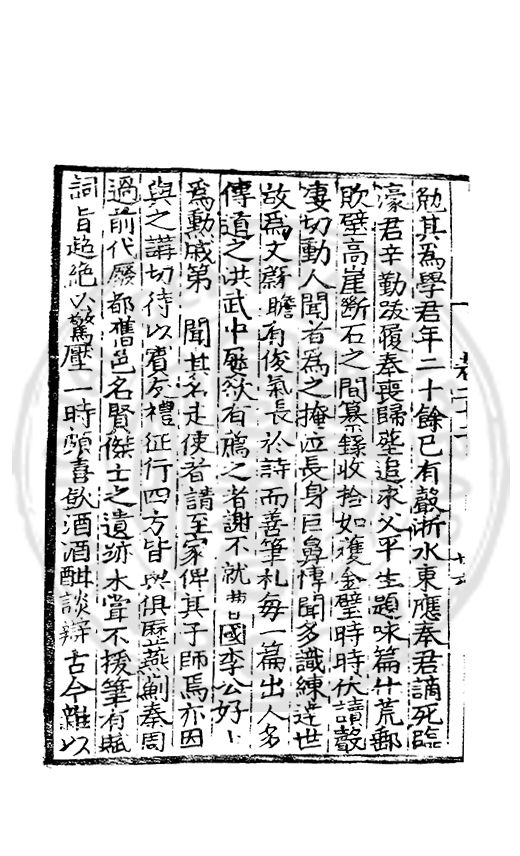 勉其爲學君年二十餘已有聲浙水東應奉君謫死臨
濠君辛勤跋履奉喪歸塟追求父平生題咏篇什荒郵
敗壁高崖斷石之間纂録收拾如𫉬金璧時時伏讀聲
凄切動人聞者爲之掩泣長身巨鼻博聞多識練達世
故爲文蔚贍有俊氣長於詩而善筆札每一篇出人名
傳道之洪武中厯欲有薦之者謝不就曹國李公好士
爲勳戚第 聞其名走使者請至家俾其子師焉亦因
與之講切待以賓友禮征行四方皆與俱歷燕薊秦周
過前代廢都舊邑名賢傑士之遺跡未嘗不援筆有賦
詞旨超絶以驚壓一時頗喜飲酒酒酣談辯古今雜以
卷二十二